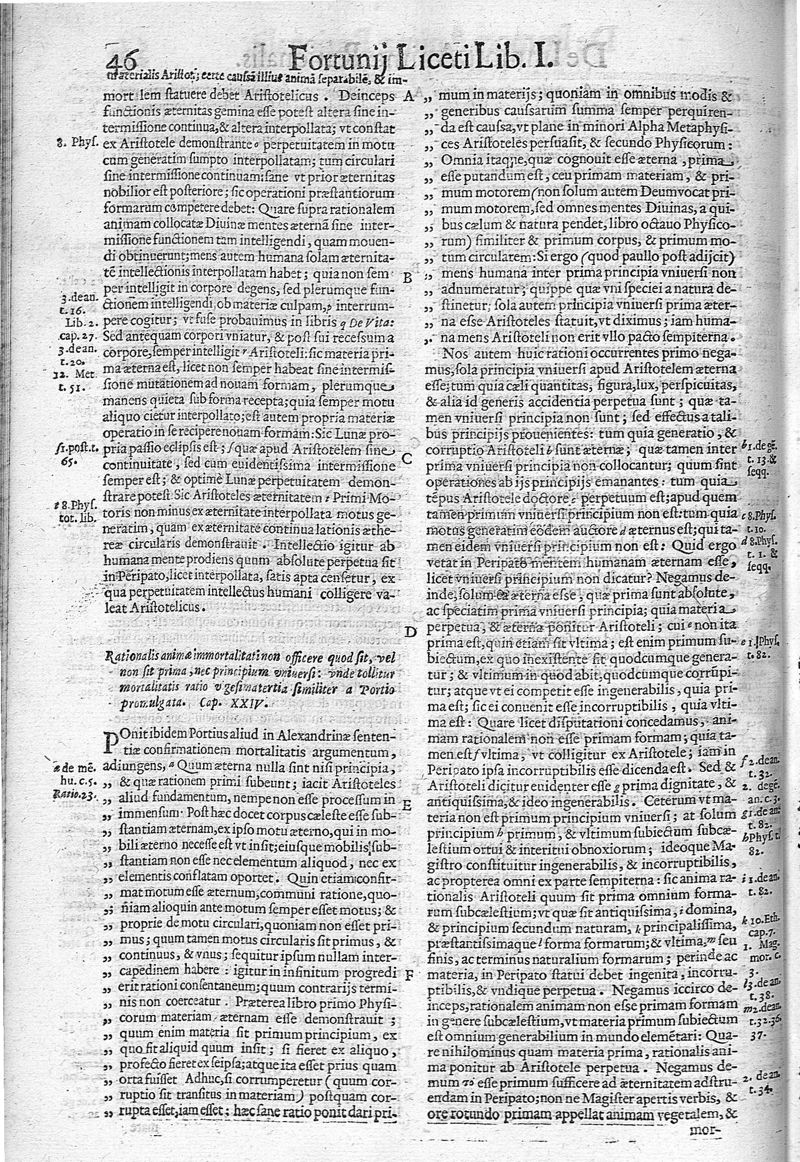 46
Fortunij Liceti Lib. I.
materialis Aristot; certe caussā illius animā separabilē, & im-
mort lem statuere debet Aristotelicus . Deinceps
functionis æternitas gemina esse potest altera sine in-
termissione continua,& altera interpollata; vt constat
8. Phys.
ex Aristotele demonstrante o perpetuitatem in motu
cum generatim sumpto interpollatam; tum circulari
sine intermissione continuam: sane vt prior æternitas
nobilior est posteriore; sic operationi præstantiorum
formarum competere debet: Quare supra rationalem
animam collocatæ Diuinæ mentes æternā sine inter-
missione functionem tam intelligendi, quam mouen-
di obtinuerunt; mens autem humana solam æternita-
tē intellectionis interpollatam habet; quia non sem
per intelligit in corpore degens, sed plerumque fun-
3. de an.
t. 16.
ctionem intelligendi, ob materiæ culpam, p interrum-
Lib. 2.
cap. 27.
pere cogitur; vt fuse probauimus in libris q De Vita:
Sed antequam corpori vniatur, & post sui recessum a
3. de an.
t. 20.
corpore, semper intelligit r Aristoteli: sic materia pri-
12. Met.
t. 51.
ma æterna est, licet non semper habeat sine intermis-
sione mutationem ad nouam formam, plerumque
manens quieta sub forma recepta; quia semper motu
aliquo cietur interpollato; est autem propria materiæ
operatio in se recipere nouam formam: Sic Lunæ pro-
s1. post. t.
65.
pria passio eclipsis est; s quæ apud Aristotelem sine
continuitate, sed cum euidentissima intermissione
semper est; & optime Lunæ perpetuitatem demon-
strare potest Sic Aristoteles æternitatem t Primi Mo-
t 8. Phys.
tot. lib.
toris non minus ex æternitate interpollata motus ge-
neratim, quam ex æternitate continua lationis æthe-
reæ circularis demonstrauit . Intellectio igitur ab
humana mente prodiens quum absolute perpetua sit
in Peripato, licet interpollata, satis apta censetur, ex
qua perpetuitatem intellectus humani colligere va-
leat Aristotelicus .
Rationalis animæ immortalitati non officere quod sit, vel
non sit prima, nec principium vniuersi: vnde tollitur
mortalitatis ratio vigesimatertia similiter a Portio
promulgata. Cap. XXIV.
POnit ibidem Portius aliud in Alexandrinæ senten-
tiæ confirmationem mortalitatis argumentum,
a de mē.
hu. c. 5.
Ratio. 23.
adiungens, a Quum æterna nulla sint nisi principia,
„ & quæ rationem primi subeunt; iacit Aristoteles
„ aliud fundamentum, nempe non esse processum in
„ immensum: Post hæc docet corpus cæleste esse sub-
„ stantiam æternam, ex ipso motu æterno, qui in mo-
„ bili æterno necesse est vt insit; eiusque mobilis, sub-
„ stantiam non esse nec elementum aliquod, nec ex
„ elementis conflatam oportet . Quin etiam confir-
„ mat motum esse æternum, communi ratione, quo-
„ niam alioquin ante motum semper esset motus; &
„ proprie de motu circulari, quoniam non esset pri-
„ mus; quum tamen motus circularis sit primus, &
„ continuus, & vnus; sequitur ipsum nullam inter-
„ capedinem habere : igitur in infinitum progredi
„ erit rationi consentaneum; quum contrarijs termi-
„ nis non coerceatur . Præterea libro primo Physi-
„ corum materiam æternam esse demonstrauit ;
„ quum enim materia sit primum principium, ex
„ quo fit aliquid quum insit; si fieret ex aliquo,
„ profecto fieret ex seipsa; atque ita esset prius quam
„ orta fuisset Adhuc, si corrumperetur (quum cor-
„ ruptio sit transitus in materiam) postquam cor-
„ rupta esset, iam esset ; hæc sane ratio ponit dari pri-
A
B
C
D
E
F
„ mum in materijs; quoniam in omnibus modis &
„ generibus caussarum summa semper perquiren-
„ da est caussa, vt plane in minori Alpha Metaphysi-
„ ces Aristoteles persuasit, & secundo Physicorum :
„ Omnia itaque, quæ cognouit esse æterna, prima
„ esse putandum est, ceu primam materiam, & pri-
„ mum motorem (non solum autem Deum vocat pri-
„ mum motorem, sed omnes mentes Diuinas, a qui-
„ bus cælum & natura pendet, libro octauo Physico-
„ rum) similiter & primum corpus, & primum mo-
„ tum circulatem: Si ergo (quod paullo post adijcit)
„ mens humana inter prima principia vniuersi non
„ adnumeratur; quippe quæ vni speciei a natura de-
„ stinetur; sola autem principia vniuersi prima æter-
„ na esse Aristoteles statuit, vt diximus; iam huma-
„ na mens Aristoteli non erit vllo pacto sempiterna .
Nos autem huic rationi occurrentes primo nega-
mus, sola principia vniuersi apud Aristotelem æterna
esse; tum quia cæli quantitas, figura, lux, perspicuitas,
& alia id generis accidentia perpetua sunt ; quæ ta-
men vniuersi principia non sunt ; sed effectus a tali-
bus principijs prouenientes: tum quia generatio, &
b 1. de gē.
t. 13. &
seqq.
corruptio Aristoteli b sunt æternæ; quæ tamen inter
prima vniuersi principia non collocantur; quum sint
operationes ab ijs principijs emanantes : tum quia
tēpus Aristotele doctore c perpetuum est; apud quem
c 8. Phys.
t. 10.
tamen primum vniuersi principium non est: tum quia
motus generatim eodem auctore d æternus est; qui ta-
d 8. Phys.
t. 1. &
seqq.
men eidem vniuersi principium non est : Quid ergo
vetat in Peripato mentem humanam æternam esse,
licet vniuersi principium non dicatur? Negamus de-
inde, solum & æterna esse, quæ prima sunt absolute,
ac speciatim prima vniuersi principia; quia materia
perpetua, & æterna ponitur Aristoteli; cui e non ita
e 1. Phys.
t. 82.
prima est, quin etiam sit vltima ; est enim primum su-
biectum, ex quo inexistente fit quodcumque genera-
tur; & vltimum in quod abit, quodcumque corrūpi-
tur; atque vt ei competit esse ingenerabilis, quia pri-
ma est; sic ei conuenit esse incorruptibilis , quia vlti-
ma est : Quare licet disputationi concedamus, ani-
mam rationalem non esse primam formam; quia ta-
f 2. de an.
t. 32.
men est f vltima, vt colligitur ex Aristotele; iam in
Peripato ipsa incorruptibilis esse dicenda est . Sed &
2. de gē.
an. c. 3.
Aristoteli dicitur euidenter esse g prima dignitate, &
g 1. de an.
t. 82.
antiquissima, & ideo ingenerabilis . Ceterum vt ma-
teria non est primum principium vniuersi ; at solum
h Phys. t.
82.
principium h primum, & vltimum subiectum subcæ-
lestium ortui & interitui obnoxiorum ; ideoque Ma-
gistro constituitur ingenerabilis, & incorruptibilis,
ac propterea omni ex parte sempiterna : sic anima ra-
i 1. de an.
t. 82.
tionalis Aristoteli quum sit prima omnium forma-
rum subcælestium; vt quæ sit antiquissima, i domina,
k 10. Eth.
cap. 7.
& principium secundum naturam, k principalissima,
1. Mag.
mor. c.
3.
præstantissimaque l forma formarum; & vltima, m seu
finis, ac terminus naturalium formarum; perinde ac
materia, in Peripato statui debet ingenita, incorru-
l 3. de an.
t. 38.
ptibilis, & vndique perpetua . Negamus iccirco de-
m 2. de an.
t. 32. 36
37.
inceps, rationalem animam non esse primam formam
in genere subcælestium, vt materia primum subiectum
est omnium generabilium in mundo elemētari: Qua-
re nihilominus quam materia prima, rationalis ani-
ma ponitur ab Aristotele perpetua . Negamus de-
2. de an.
t. 34.
mum τὸ esse primum sufficere ad æternitatem adstru-
endam in Peripato; non ne Magister apertis verbis, &
ore rotundo primam appellat animam vegetalem, &
mor-